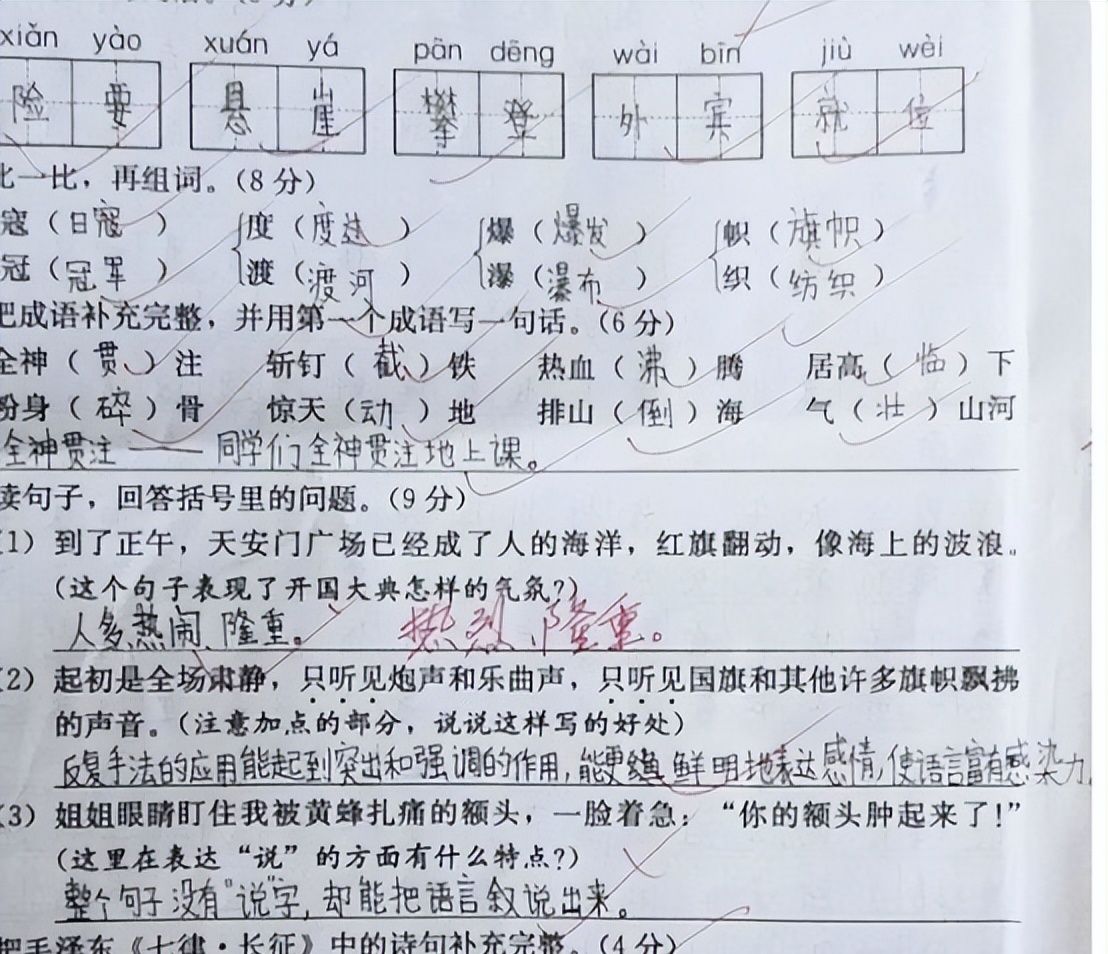 xiǎn yào xuán yá pān dēng wài bīn jiù wèi
险 要 悬 崖 攀 登 外 宾 就 位
比一比，再组词。(8分)
寇（日寇） 度（度过） 爆（爆发） 帜（旗帜）
冠（冠军） 渡（渡河） 瀑（瀑布） 织（纺织）
把成语补充完整，并用第一个成语写一句话。(6分)
全神（贯）注 斩钉（截）铁 热血（沸）腾 居高（临）下
粉身（碎）骨 惊天（动）地 排山（倒）海 气（壮）山河
全神贯注——同学们全神贯注地上课。
读句子，回答括号里的问题。(9分)
(1) 到了正午，天安门广场已经成了人的海洋，红旗翻动，像海上的波浪。
(这个句子表现了开国大典怎样的气氛?)
人多热闹、隆重。 热烈、隆重。
(2) 起初是全场肃静，只听见炮声和乐曲声，只听见国旗和其他许多旗帜飘拂
的声音。(注意加点的部分，说说这样写的好处)
反复手法的应用能起到突出和强调的作用，能更鲜明地表达感情，使语言富有感染力
(3) 姐姐眼睛盯住我被黄蜂扎痛的额头，一脸着急：“你的额头肿起来了!”
(这里在表达“说”的方面有什么特点?)
整个句子没有“说”字，却能把语言叙说出来。
把毛泽东《七律·长征》中的诗句补充完整。(4分)